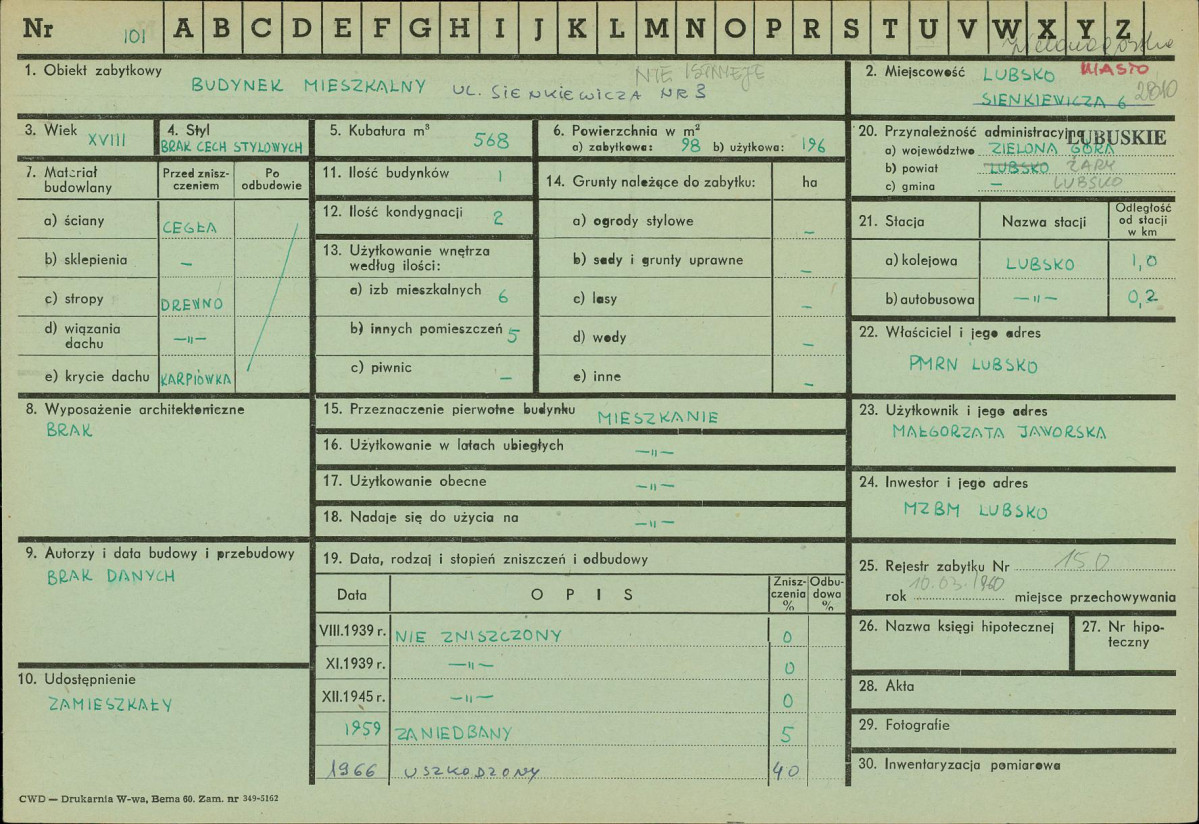 Nr 101 A B C D E F G H I J K L M N O P R S T U V W X Y Z
zielonogórskie
1. Obiekt zabytkowy
NIE ISTNIEJE
BUDYNEK MIESZKALNY UL. SIENKIEWICZA NR 3
2. Miejscowość LUBSKO MIASTO
SIENKIEWICZA 6
3. Wiek XVIII
4. Styl
BRAK CECH STYLOWYCH
5. Kubatura m³ 568
6. Powierzchnia w m²
a) zabytkowa: 98 b) użytkowa: 196
20. Przynależność administracyjna
LUBUSKIE
a) województwo ZIELONA GÓRA
b) powiat LUBSKO ŻARY
c) gmina — LUBSKO
7. Materiał budowlany
Przed zniszczeniem
Po odbudowie
a) ściany CEGŁA
b) sklepienia —
c) stropy DREWNO
d) wiązania dachu —„—
e) krycie dachu KARPIÓWKA
11. Ilość budynków 1
12. Ilość kondygnacji 2
13. Użytkowanie wnętrza
według ilości:
a) izb mieszkalnych 6
b) innych pomieszczeń 5
c) piwnic —
14. Grunty należące do zabytku: ha
a) ogrody stylowe —
b) sady i grunty uprawne —
c) lasy —
d) wody —
e) inne —
21. Stacja
Nazwa stacji
Odległość
od stacji
w km
a) kolejowa LUBSKO 1,0
b) autobusowa —„— 0,2
22. Właściciel i jego adres
PMRN LUBSKO
8. Wyposażenie architektoniczne
BRAK
15. Przeznaczenie pierwotne budynku MIESZKANIE
16. Użytkowanie w latach ubiegłych —„—
17. Użytkowanie obecne —„—
18. Nadaje się do użycia na —„—
23. Użytkownik i jego adres
MAŁGORZATA JAWORSKA
24. Inwestor i jego adres
MZBM LUBSKO
9. Autorzy i data budowy i przebudowy
BRAK DANYCH
10. Udostępnienie
ZAMIESZKAŁY
19. Data, rodzaj i stopień zniszczeń i odbudowy
Data
OPIS
Zniszczenia %
Odbudowa %
VIII.1939 r. NIE ZNISZCZONY 0
XI.1939 r. —„— 0
XII.1945 r. —„— 0
1959 ZANIEDBANY 5
1966 USZKODZONY 40
25. Rejestr zabytku Nr 150
rok 10.03.1960 miejsce przechowywania
26. Nazwa księgi hipotecznej
27. Nr hipoteczny
28. Akta
29. Fotografie
30. Inwentaryzacja pomiarowa
CWD — Drukarnia W-wa, Bema 60. Zam. nr 349-5162